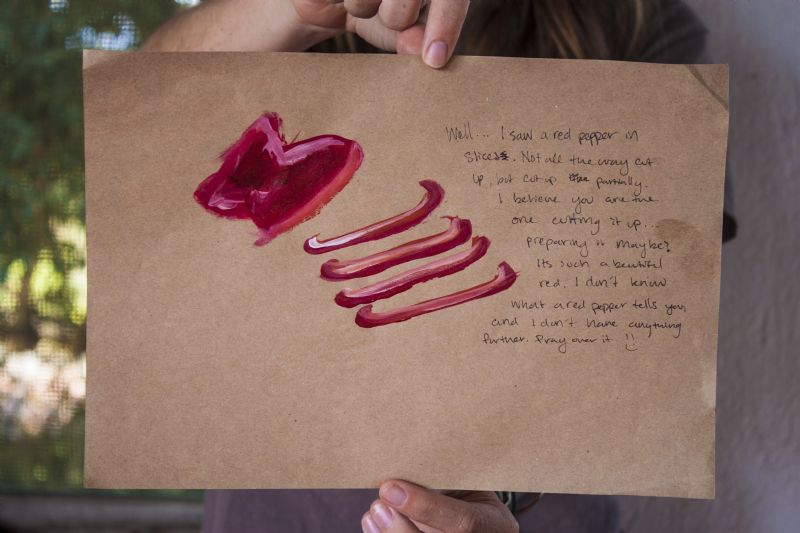 Well... I saw a red pepper in
slices. Not all the way cut
up, but cut up partially.
I believe you are the
one cutting it up...
preparing it maybe?
Its such a beautiful
red. I don't know
what a red pepper tells you,
and I don't have anything
further. Pray over it :)